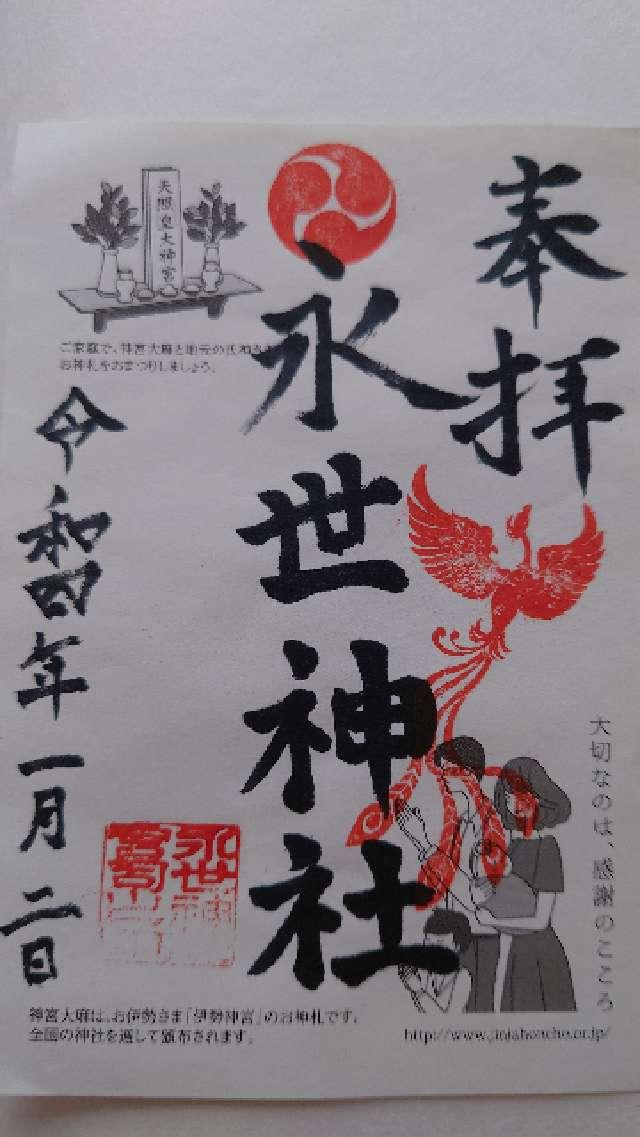 奉拝
永世神社
令和四年一月二日
天照皇大神宮
ご家庭で、神宮大麻と地元の氏神さま
お神札をおまつりしましょう。
大切なのは、感謝のこころ
神宮大麻は、お伊勢さま「伊勢神宮」のお神札です。
全国の神社を通して頒布されます。
http://www.jinjahoncho.or.jp/